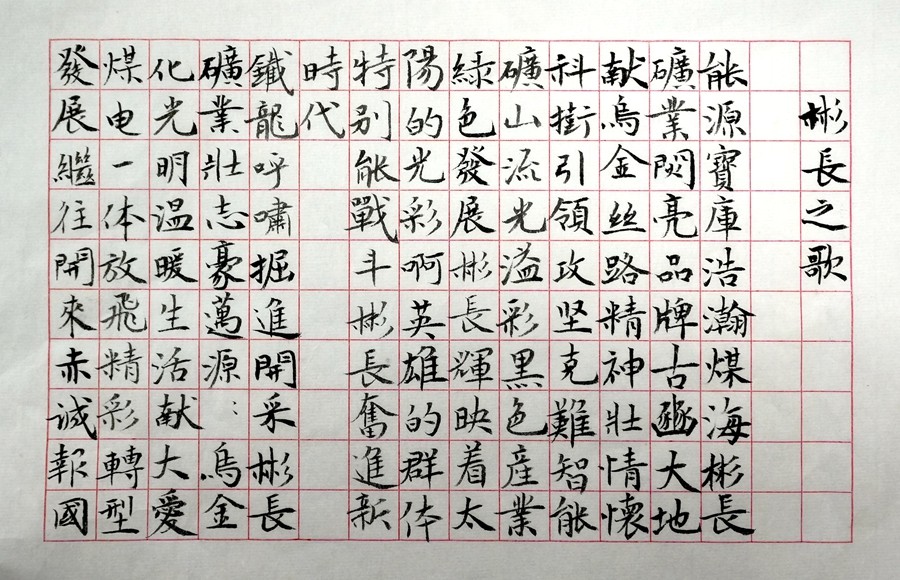 彬長之歌
能源寶庫浩瀚煤海彬長
礦業閃亮品牌古豳大地
献烏金丝路精神壯情懷
科術引領攻坚克難智能
礦山流光溢彩黑色産業
緑色發展彬長輝映着太
陽的光彩啊英雄的群体
特别能戰斗彬長奮進新
時代
鐵龍呼嘯掘進開采彬長
礦業壯志豪邁源:烏金
化光明温暖生活献大愛
煤电一体放飛精彩轉型
發展繼往開來赤誠報國